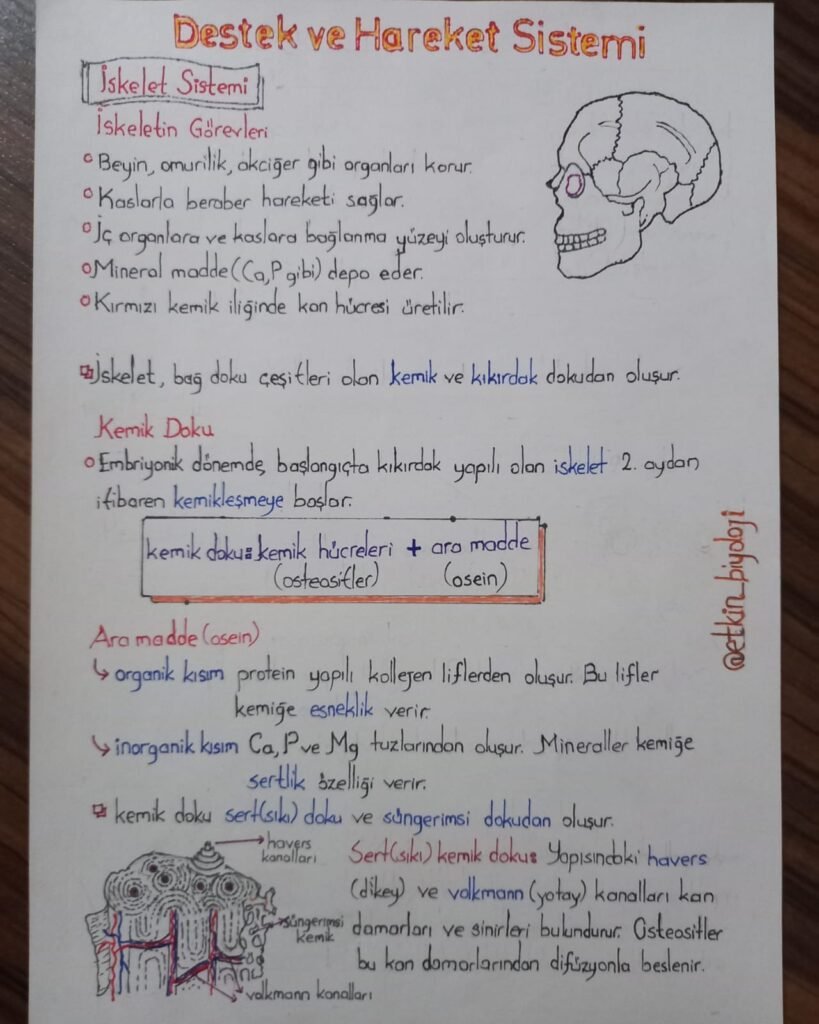 Destek ve Hareket Sistemi
İskelet Sistemi
İskeletin Görevleri
Beyin, omurilik, akciğer gibi organları korur.
Kaslarla beraber hareketi sağlar.
İç organlara ve kaslara bağlanma yüzeyi oluşturur.
Mineral madde (Ca, P gibi) depo eder.
Kırmızı kemik iliğinde kan hücresi üretilir.
İskelet, bağ doku çeşitleri olan kemik ve kıkırdak dokudan oluşur.
Kemik Doku
Embriyonik dönemde, başlangıçta kıkırdak yapılı olan iskelet 2. aydan
itibaren kemikleşmeye başlar.
kemik doku: kemik hücreleri + ara madde
(osteositler) (osein)
@etkin_biyoloji
Ara madde (osein)
↳ organik kısım protein yapılı kollejen liflerden oluşur. Bu lifler
kemiğe esneklik verir.
↳ inorganik kısım Ca, P ve Mg tuzlarından oluşur. Mineraller kemiğe
sertlik özelliği verir.
kemik doku sert(sıkı) doku ve süngerimsi dokudan oluşur.
havers
kanalları
süngerimsi
kemik
volkmann kanalları
Sert(sıkı) kemik doku: Yapısındaki havers
(dikey) ve volkmann (yatay) kanalları kan
damarları ve sinirleri bulundurur. Osteositler
bu kan damarlarından difüzyonla beslenir.